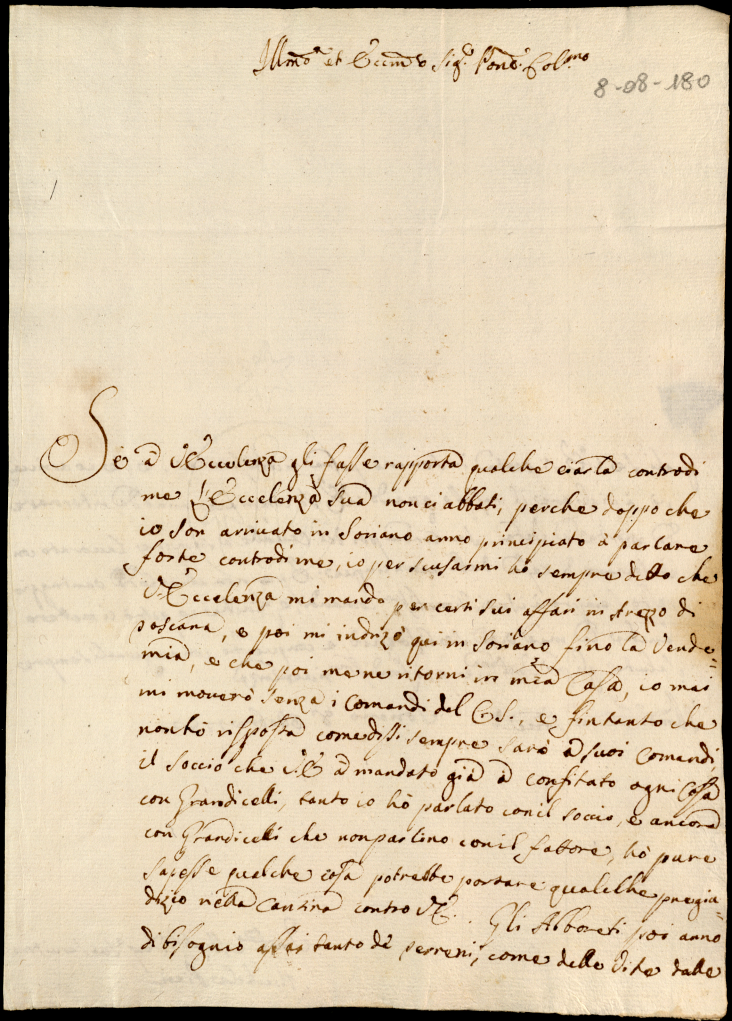 Illmo et Eccmo Sigr Pone Colmo
8-08-180
Se à V Eccelenza gli fasse rapporta qualche ciarla controdi
me L'Eccelenza sua non ci abbati, perche doppo che
io son arrivato in Soriano anno principiato à parlare
forte controdime, io per scusarmi hò sempre detto che
V. Eccelenza mi mandò per certi sui affari in Arezzo di
Toscana, e poi mi indrizò qui in Soriano fino la Vende=
mia, e che poi me ne ritorni in mia Casa, io mai
mi moverò senza i Comandi del E S., e fintanto che
non hò risposta come dissi sempre sarò à suoi Comandi,
il Soccio che V E à mandato già à confitato ogni Cosa
con Grandicelli, tanto io hò parlato con il soccio, e ancora
con Grandicelli che non parlino con il fattore, hò pure
sapesse qualche cosa potrebbe portare qualche pregia=
dizio nella Cantina contro VE. Gli Alboreti poi anno
di bisognio assai tanto dè terreni, come delle Vite dalle